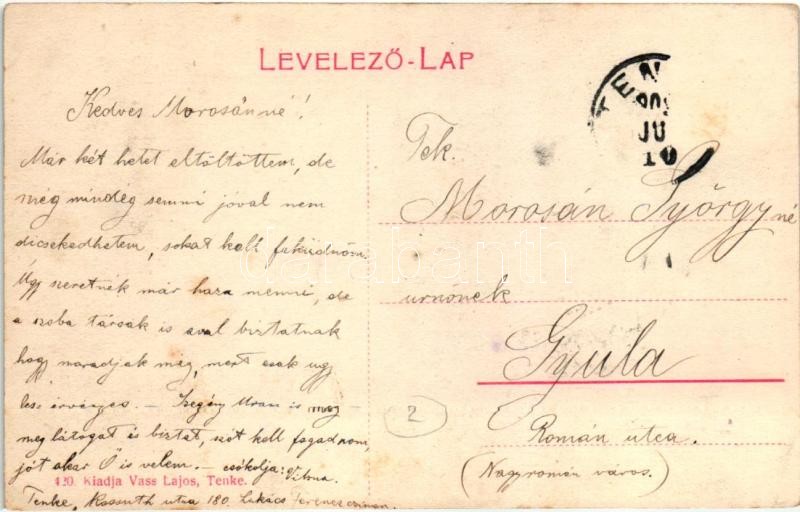 LEVELEZŐ-LAP
Kedves Morosánné!
Már két hetet eltöltöttem, de
még mindég semmi jóval nem
dicsekedhetem, sokat kell feküdnöm.
Úgy szeretnék már haza menni, de
a szoba társak is aval biztatnak
hogy maradjak még, mert csak ugy
lesz érvényes. – Szegény Uram is meg-
meg látogat és biztat, szót kell fogadnom,
jót akar Ő is velem. – csókolja: Vilma.
420. Kiadja Vass Lajos, Tenke.
Tenke, Kossuth utca 180. Lukács Ferenc
TEN
JU
10
Tek.
Morosán Györgyné
úrnőnek
Gyula
Román utca.
(Nagyromán város.)
2
darabanth